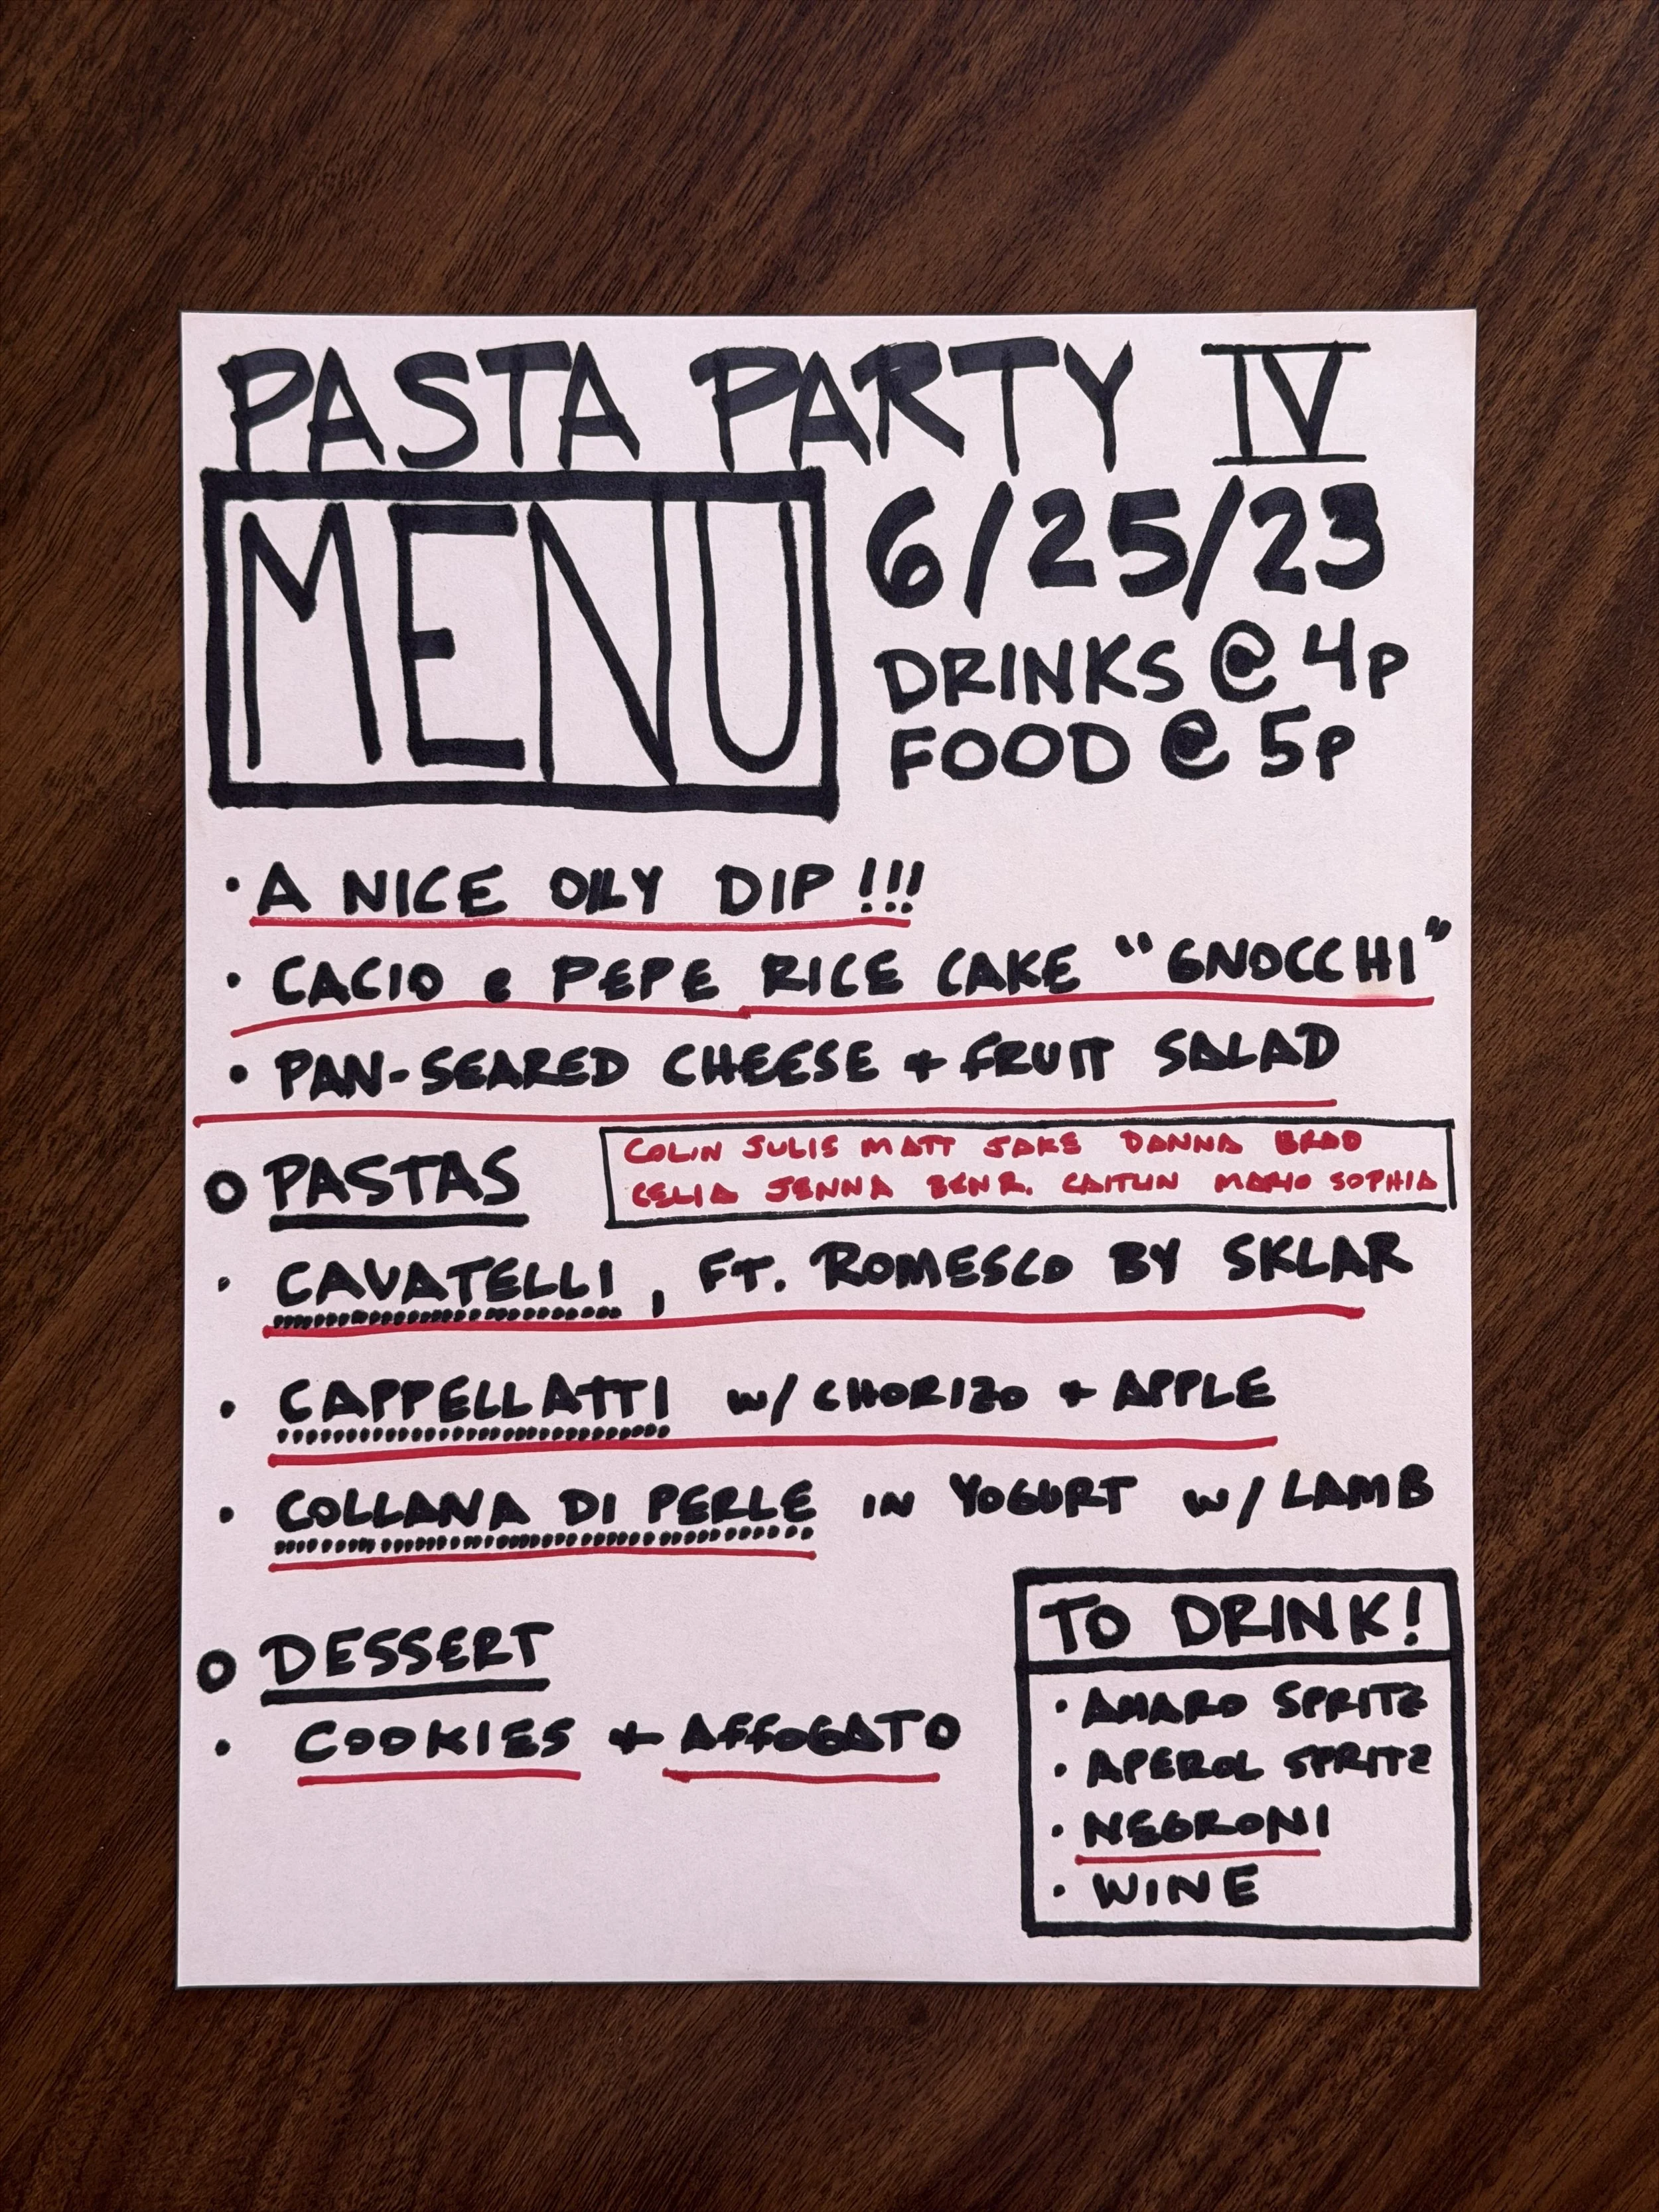 PASTA PARTY IV
MENU
6/25/23
DRINKS @ 4P
FOOD @ 5P
• A NICE OILY DIP!!!
• CACIO e PEPE RICE CAKE "GNOCCHI"
• PAN-SEARED CHEESE + FRUIT SALAD
COLIN JULIE MATT JAKE DANNA BRAD
CELIA JENNA BEN R. CAITLIN MARIO SOPHIA
○ PASTAS
• CAVATELLI, FT. ROMESCO BY SKLAR
• CAPPELLATTI w/ CHORIZO + APPLE
• COLLANA DI PERLE IN YOGURT w/ LAMB
○ DESSERT
• COOKIES + AFFOGATO
TO DRINK!
• AMARO SPRITZ
• APEROL SPRITZ
• NEGRONI
• WINE